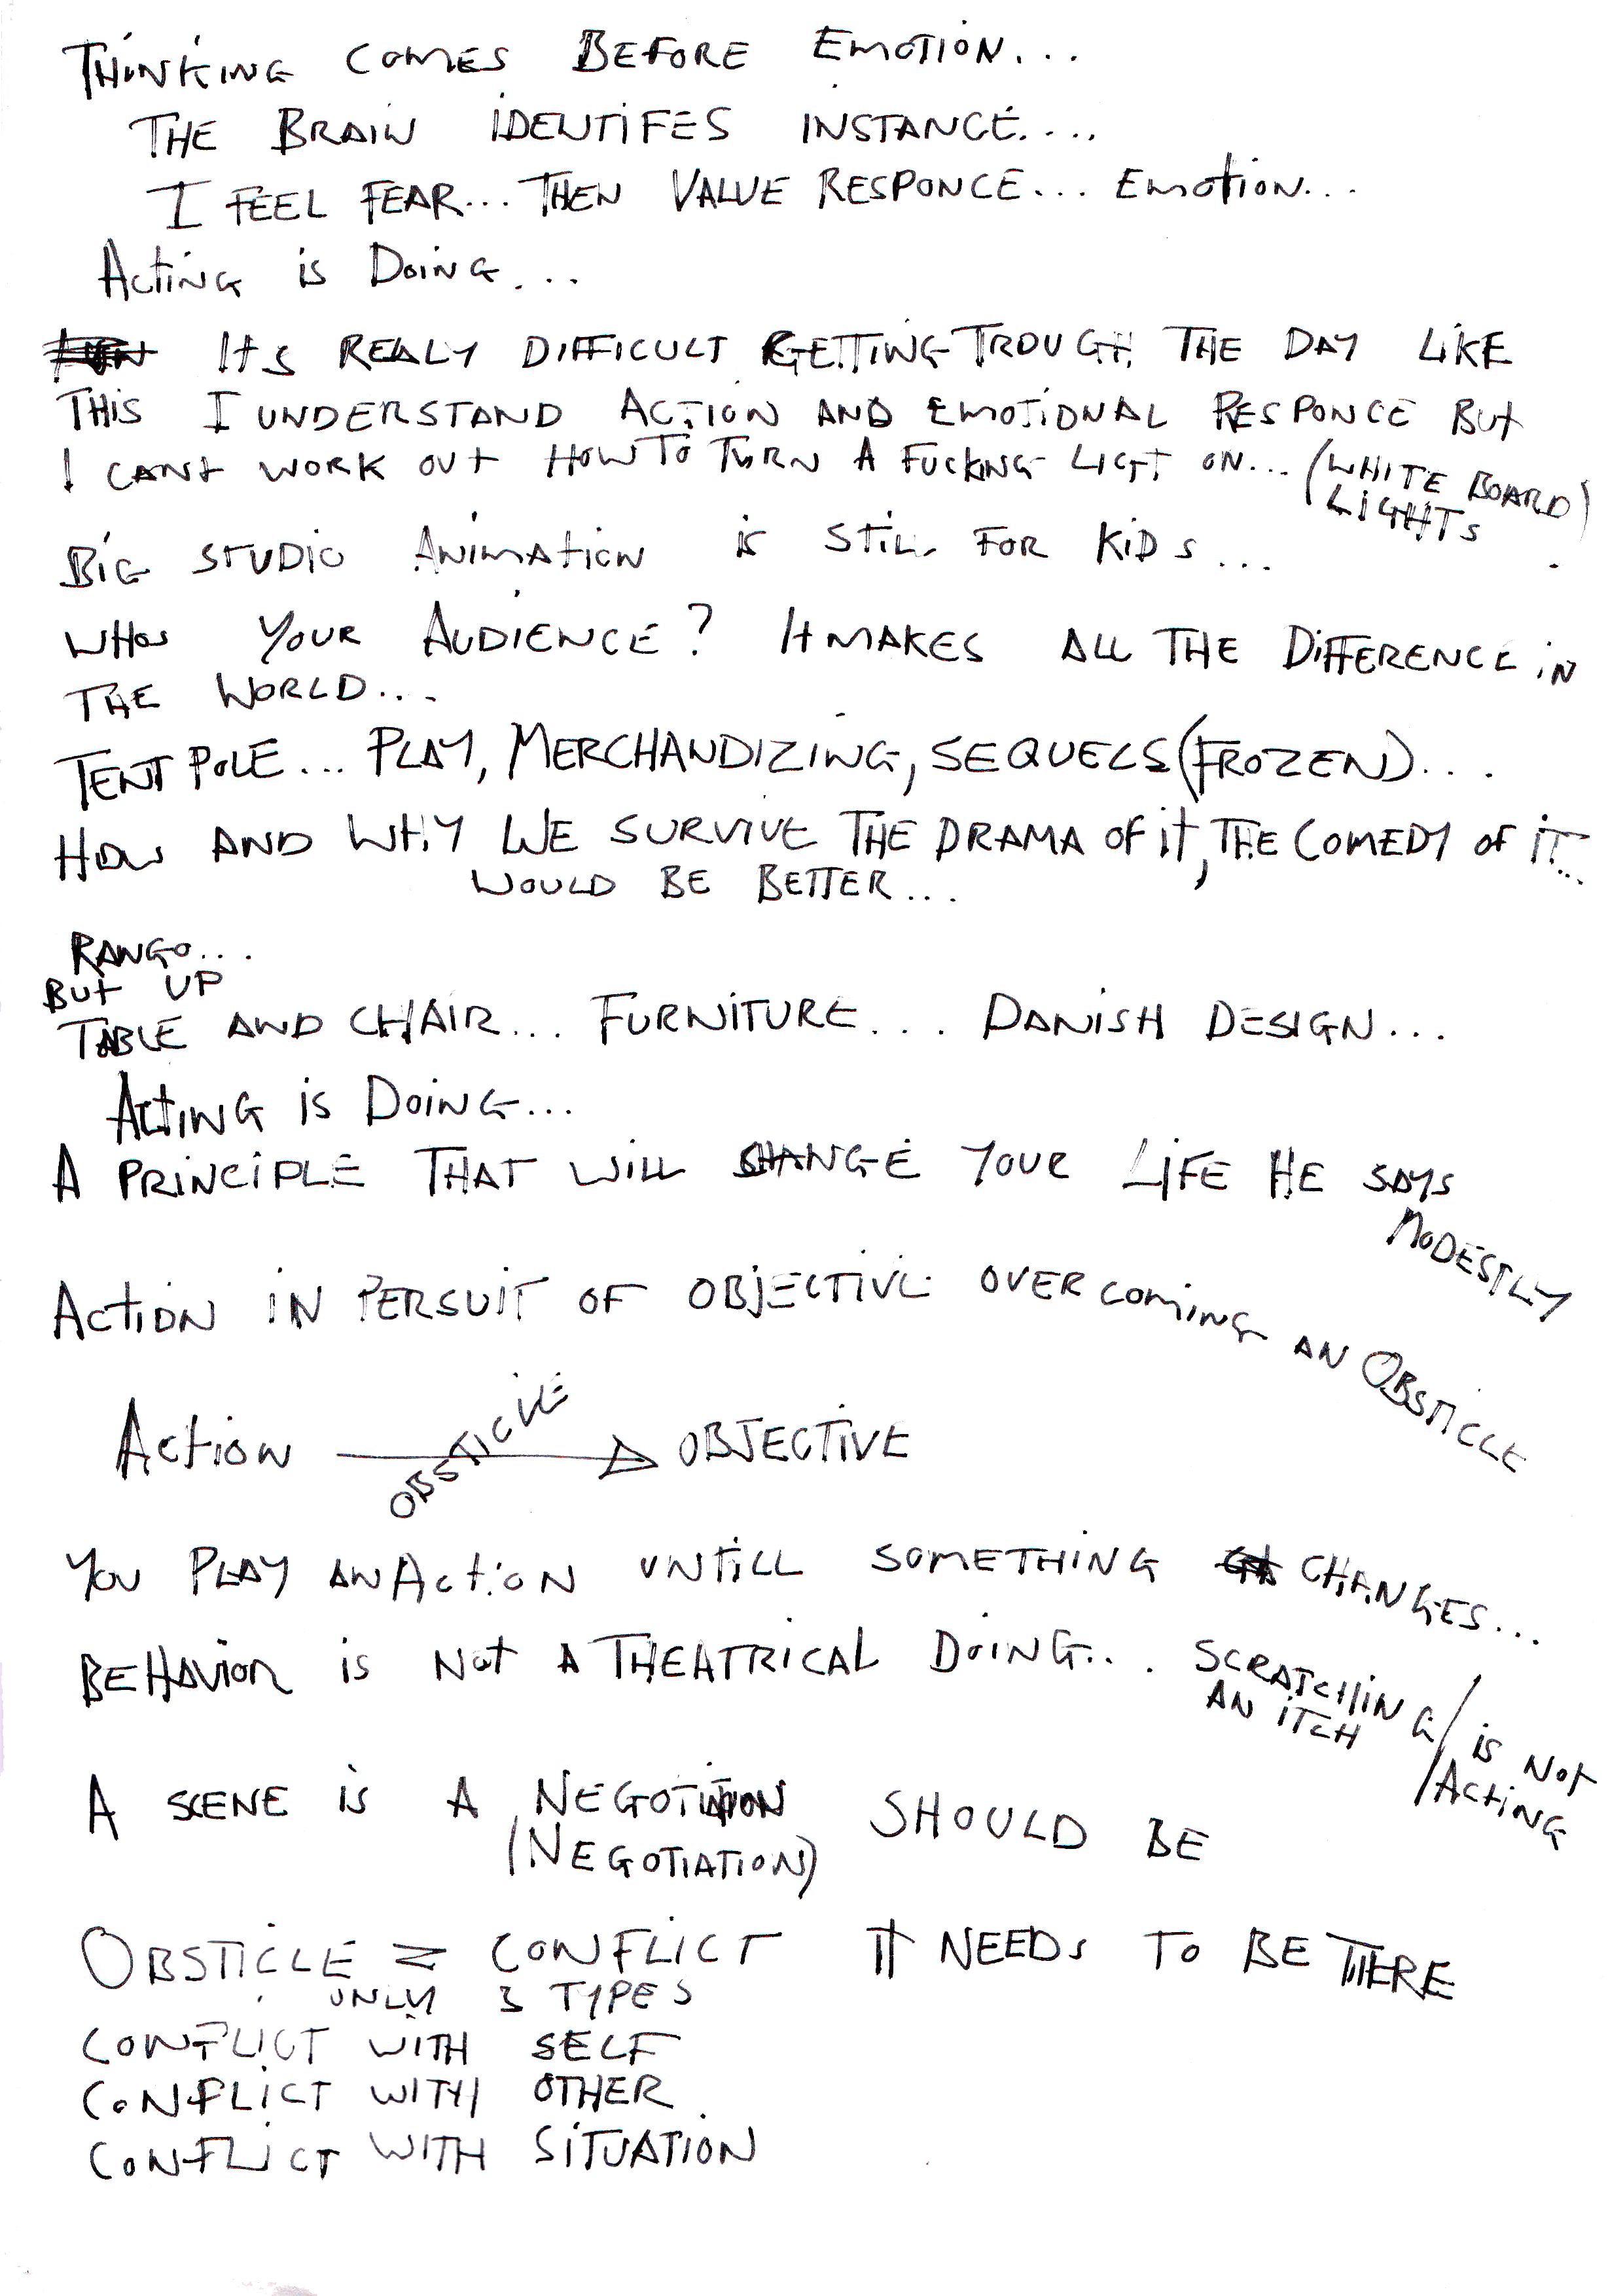 THINKING COMES BEFORE EMOTION...
THE BRAIN IDENTIFES INSTANCE....
I FEEL FEAR... THEN VALUE RESPONCE... EMOTION...
ACTING IS DOING...
ITS REALY DIFFICULT GETTING TROUGH THE DAY LIKE
THIS I UNDERSTAND ACTION AND EMOTIONAL RESPONCE BUT
I CANT WORK OUT HOW TO TURN A FUCKING LIGTT ON... (WHITE BOARD)
LIGHTS
BIG STUDIO ANIMATION IS STILL FOR KIDS...
WHOS YOUR AUDIENCE? IT MAKES ALL THE DIFFERENCE IN
THE WORLD....
TENT POLE... PLAY, MERCHANDIZING, SEQUELS (FROZEN)...
HOW AND WHY WE SURVIVE THE DRAMA OF IT, THE COMEDY OF IT...
WOULD BE BETTER...
RANGO...
BUT UP
TABLE AND CHAIR... FURNITURE.... DANISH DESIGN...
ACTING IS DOING...
A PRINCIPLE THAT WILL CHANGE YOUR LIFE HE SAYS
MODESTLY
ACTION IN PERSUIT OF OBJECTIVE OVERCOMING AN OBSTICLE
ACTION OBSTICLE OBJECTIVE
YOU PLAY AN ACTION UNTILL SOMETHING CHANGES...
BEHAVIOR IS NOT A THEATRICAL DOING... SCRATCHING / IS NOT
AN ITCH / ACTING
A SCENE IS A NEGOTIATION SHOULD BE
(NEGOTIATION)
OBSTICLE = CONFLICT IT NEEDS TO BE THERE
ONLY 3 TYPES
CONFLICT WITH SELF
CONFLICT WITH OTHER
CONFLICT WITH SITUATION